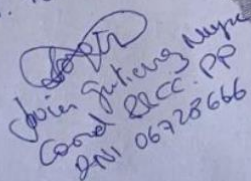 Javier Gutierrez
Coord RRCC. PP
DNI 06728666